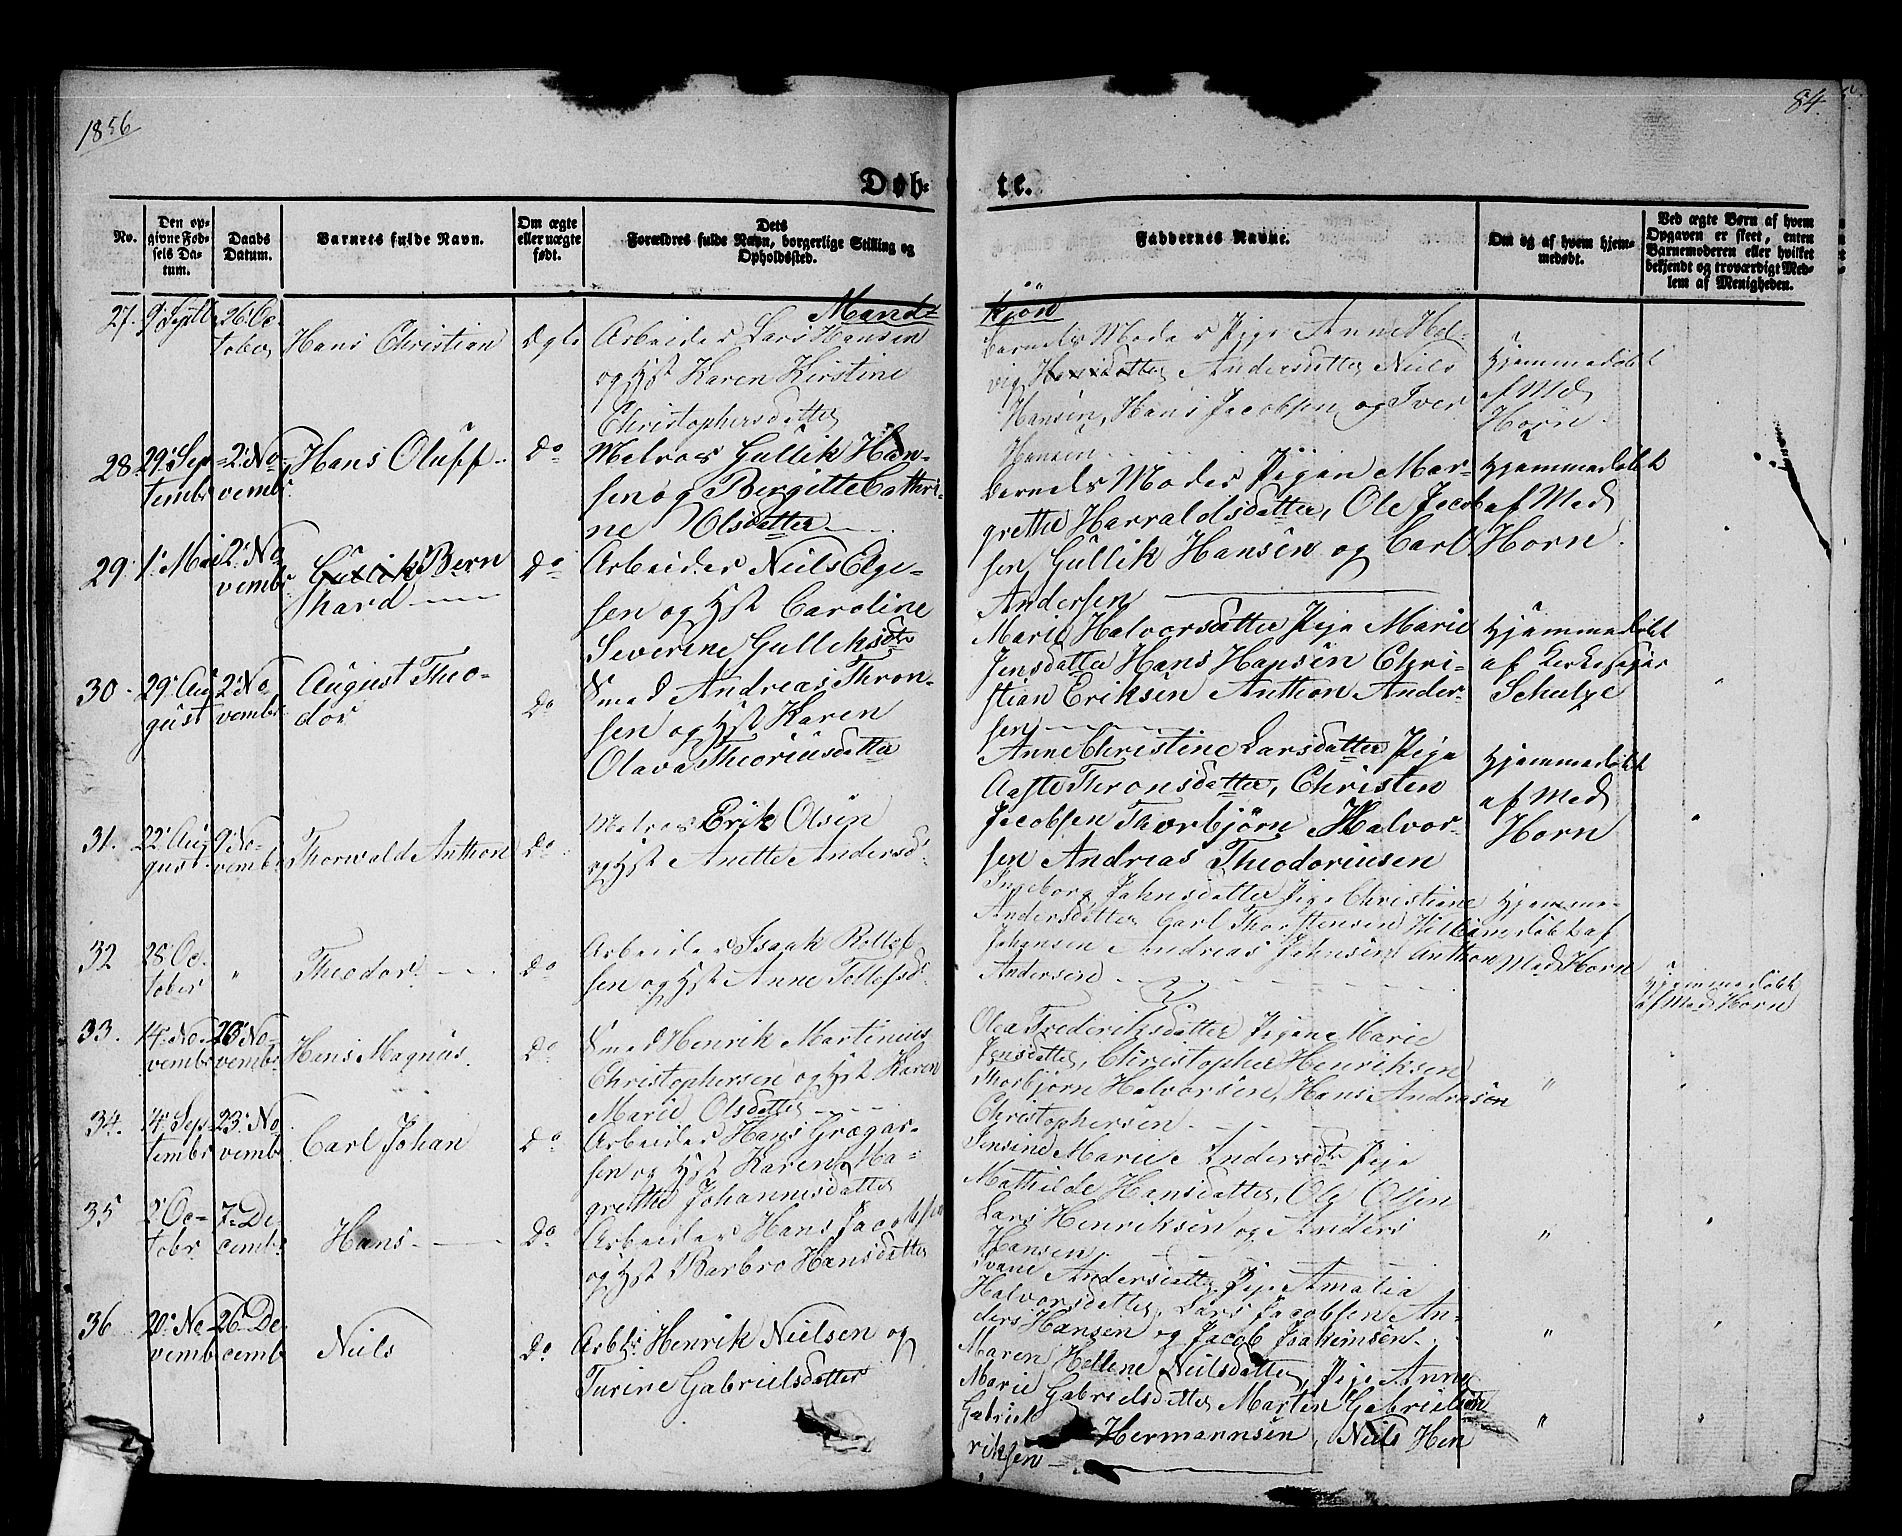 1856
84.
Døb-
te.
No.
Den op-
givne Fød-
sels Da-
tum.
Daabs
Datum.
Barnets fulde Navn.
Om ægte
eller uægte
født.
Dets
Forældres fulde Navn, borgerlige Stilling og
Opholdssted.
Faddernes Navne.
Om og af hvem hjem-
medøbt.
Ved ægte Børn af hvem
Opgaven er skeet, enten
Barnemoderen eller hvilket
bekjendt og troværdigt Med-
lem af Menigheden.
Mand-
kjøn
27.
26 Oc-
tober
Hans Christian
Arbeider Lars Hansen
og Hst Karen Kirstine
Christophersdatter
barnets Moder Pige Anne Hel-
vig Andersdatter Niels
Hansen, Hans Jacobsen og Iver
Hansen
Hjemmedøbt
af Md
Horn.
28
29 Sep-
tembr
2 No-
vembr.
Hans Oluff
Do
Matros Gullik Han-
sen og Bergitte Cathri-
ne Olsdatter
barnets Moder Pigen Mar-
grethe Harraldsdatter, Ole Jacob
sen Gullik Hansen og Carl
Andersen
Hjemmedøbt
af Mad
Horn.
29
1 Mai
2 No-
vembr
Gullik Bern
hard
Do
Arbeider Niels Elge-
sen og Hst Caroline
Severine Gulliksdtr
Marie Halvorsdatter Pige Marie
Jensdatter Hans Hansen Chri-
stian Eriksen Anthon Ander-
sen
Hjemmedøbt
af Kirkesanger
Schulze
30
29 Au
gust
2 No
vembr
August Theo-
dor
Do
Smed Andreas Thron-
sen og Hst Karen
Olava Theoriusdatter
Anne Christine Larsdatter Pige
Aaste Thronsdatter, Christen
Jacobsen Thorbjørn Halvor-
sen Andreas Theodoriusen
Hjemmedøbt
af Mad
Horn
31.
22 Au
gust
9 No-
vembr
Thorwald Anthon
Do
Matros Erik Olsen
og Hst Anette Andersd.
Ingeborg Jahnsdatter Pige Christiane
Andersdatter Carl Thorstensen William
Johansen Andreas Jahnsen Anthon
Andersen
Hjemme-
døbt af
Mad Horn
32
28 Oc-
tober
"
Theodor
Do
Arbeider Isaak Rollef
sen og Hst Anne Tollefsd.
Hjemmedøbt
af Mad Horn
33.
14 No-
vembr
23 No-
vembr
Hans Magnus.
Do
Smed Henrik Martinius
Christophersen og Hst Karen
Marie Olsdatter
Olea Frederiksdatter Pigene Marie
Jensdatter, Christopher Henriksen
Thorbjørn Halvorsen, Hans Andrasen
Christophersen
"
34.
14 Sep-
tembr
23 No
vembr
Carl Johan
Do
Arbeider Hans Grægar-
sen og Hst Karen Ma-
grethe Johannesdatter
Jensine Marie Andersdtr Pige
Mathilde Hansdatter, Ole Olsen
Lars Henriksen og Anders
Hansen
"
35
2 Oc-
tobr
7 De-
cembr
Hans
Do
Arbeider Hans Jacobsen
og Hst Barbro Hansdatter
Andersdatter Pige Amalia
Halvorsdatter, Lars Jacobsen An-
ders Hansen og Jacob Joakimsen
"
36
20 No-
vemb
26 De-
cemb
Niels
Do
Arbdr Henrik Nielsen og
Turine Gabrielsdatter
Maren Hellene Nielsdatter, Pige Anne
Marie Gabrielsdatter Marten Gabrielsen
Gabriel Hermannsen, Niels Hen
riksen
"